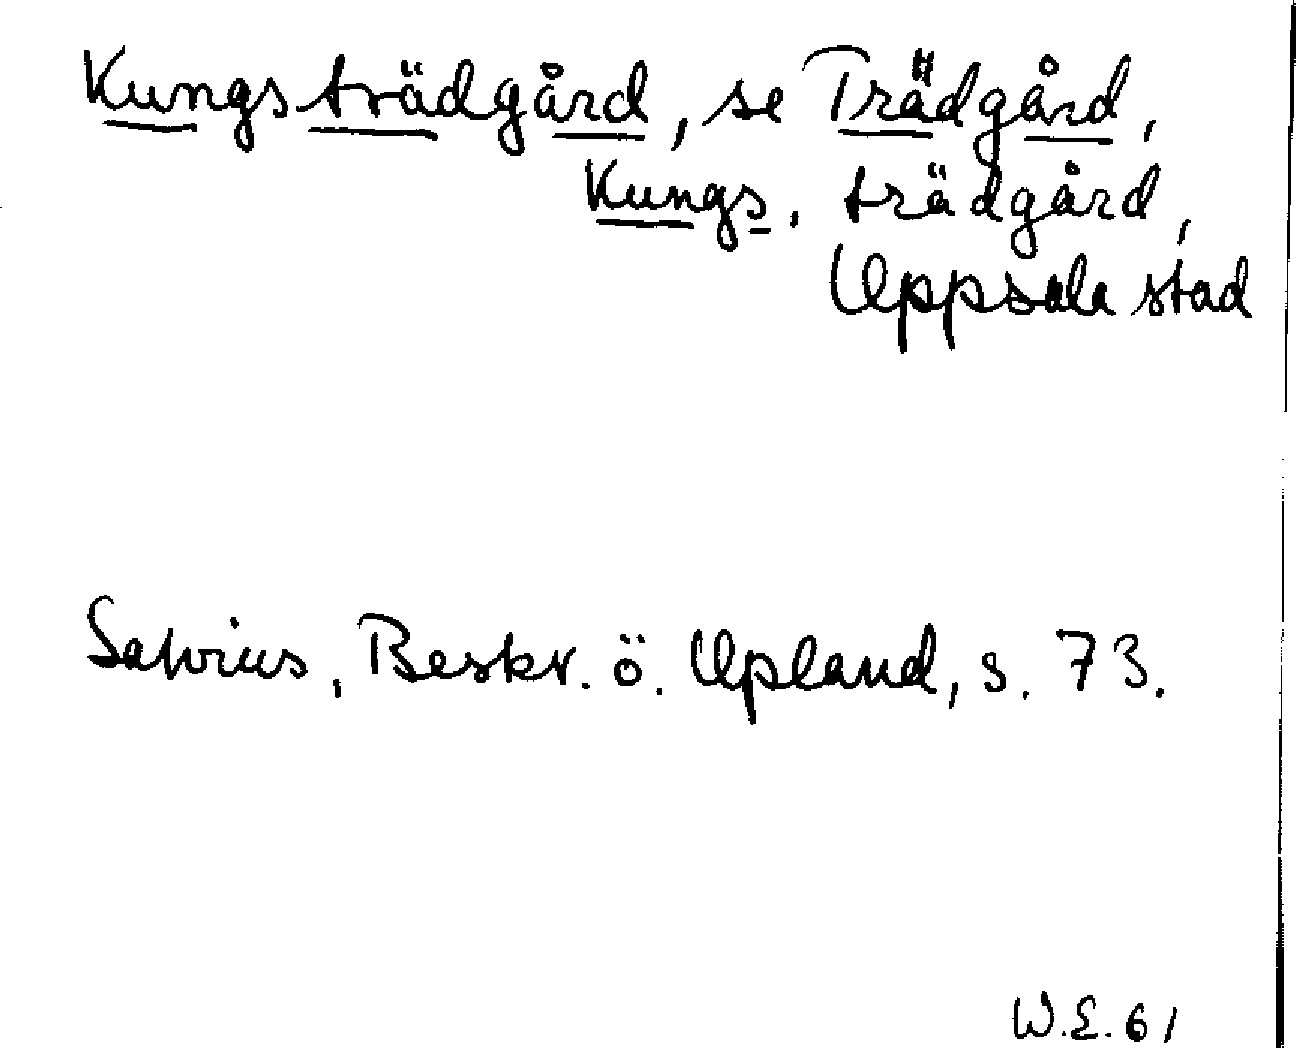 Kungsträdgård, se Trädgård,
Kungs, trädgård,
Uppsala stad
Salvius, Beskr. ö. Upland, s. 73.
W.E. 61